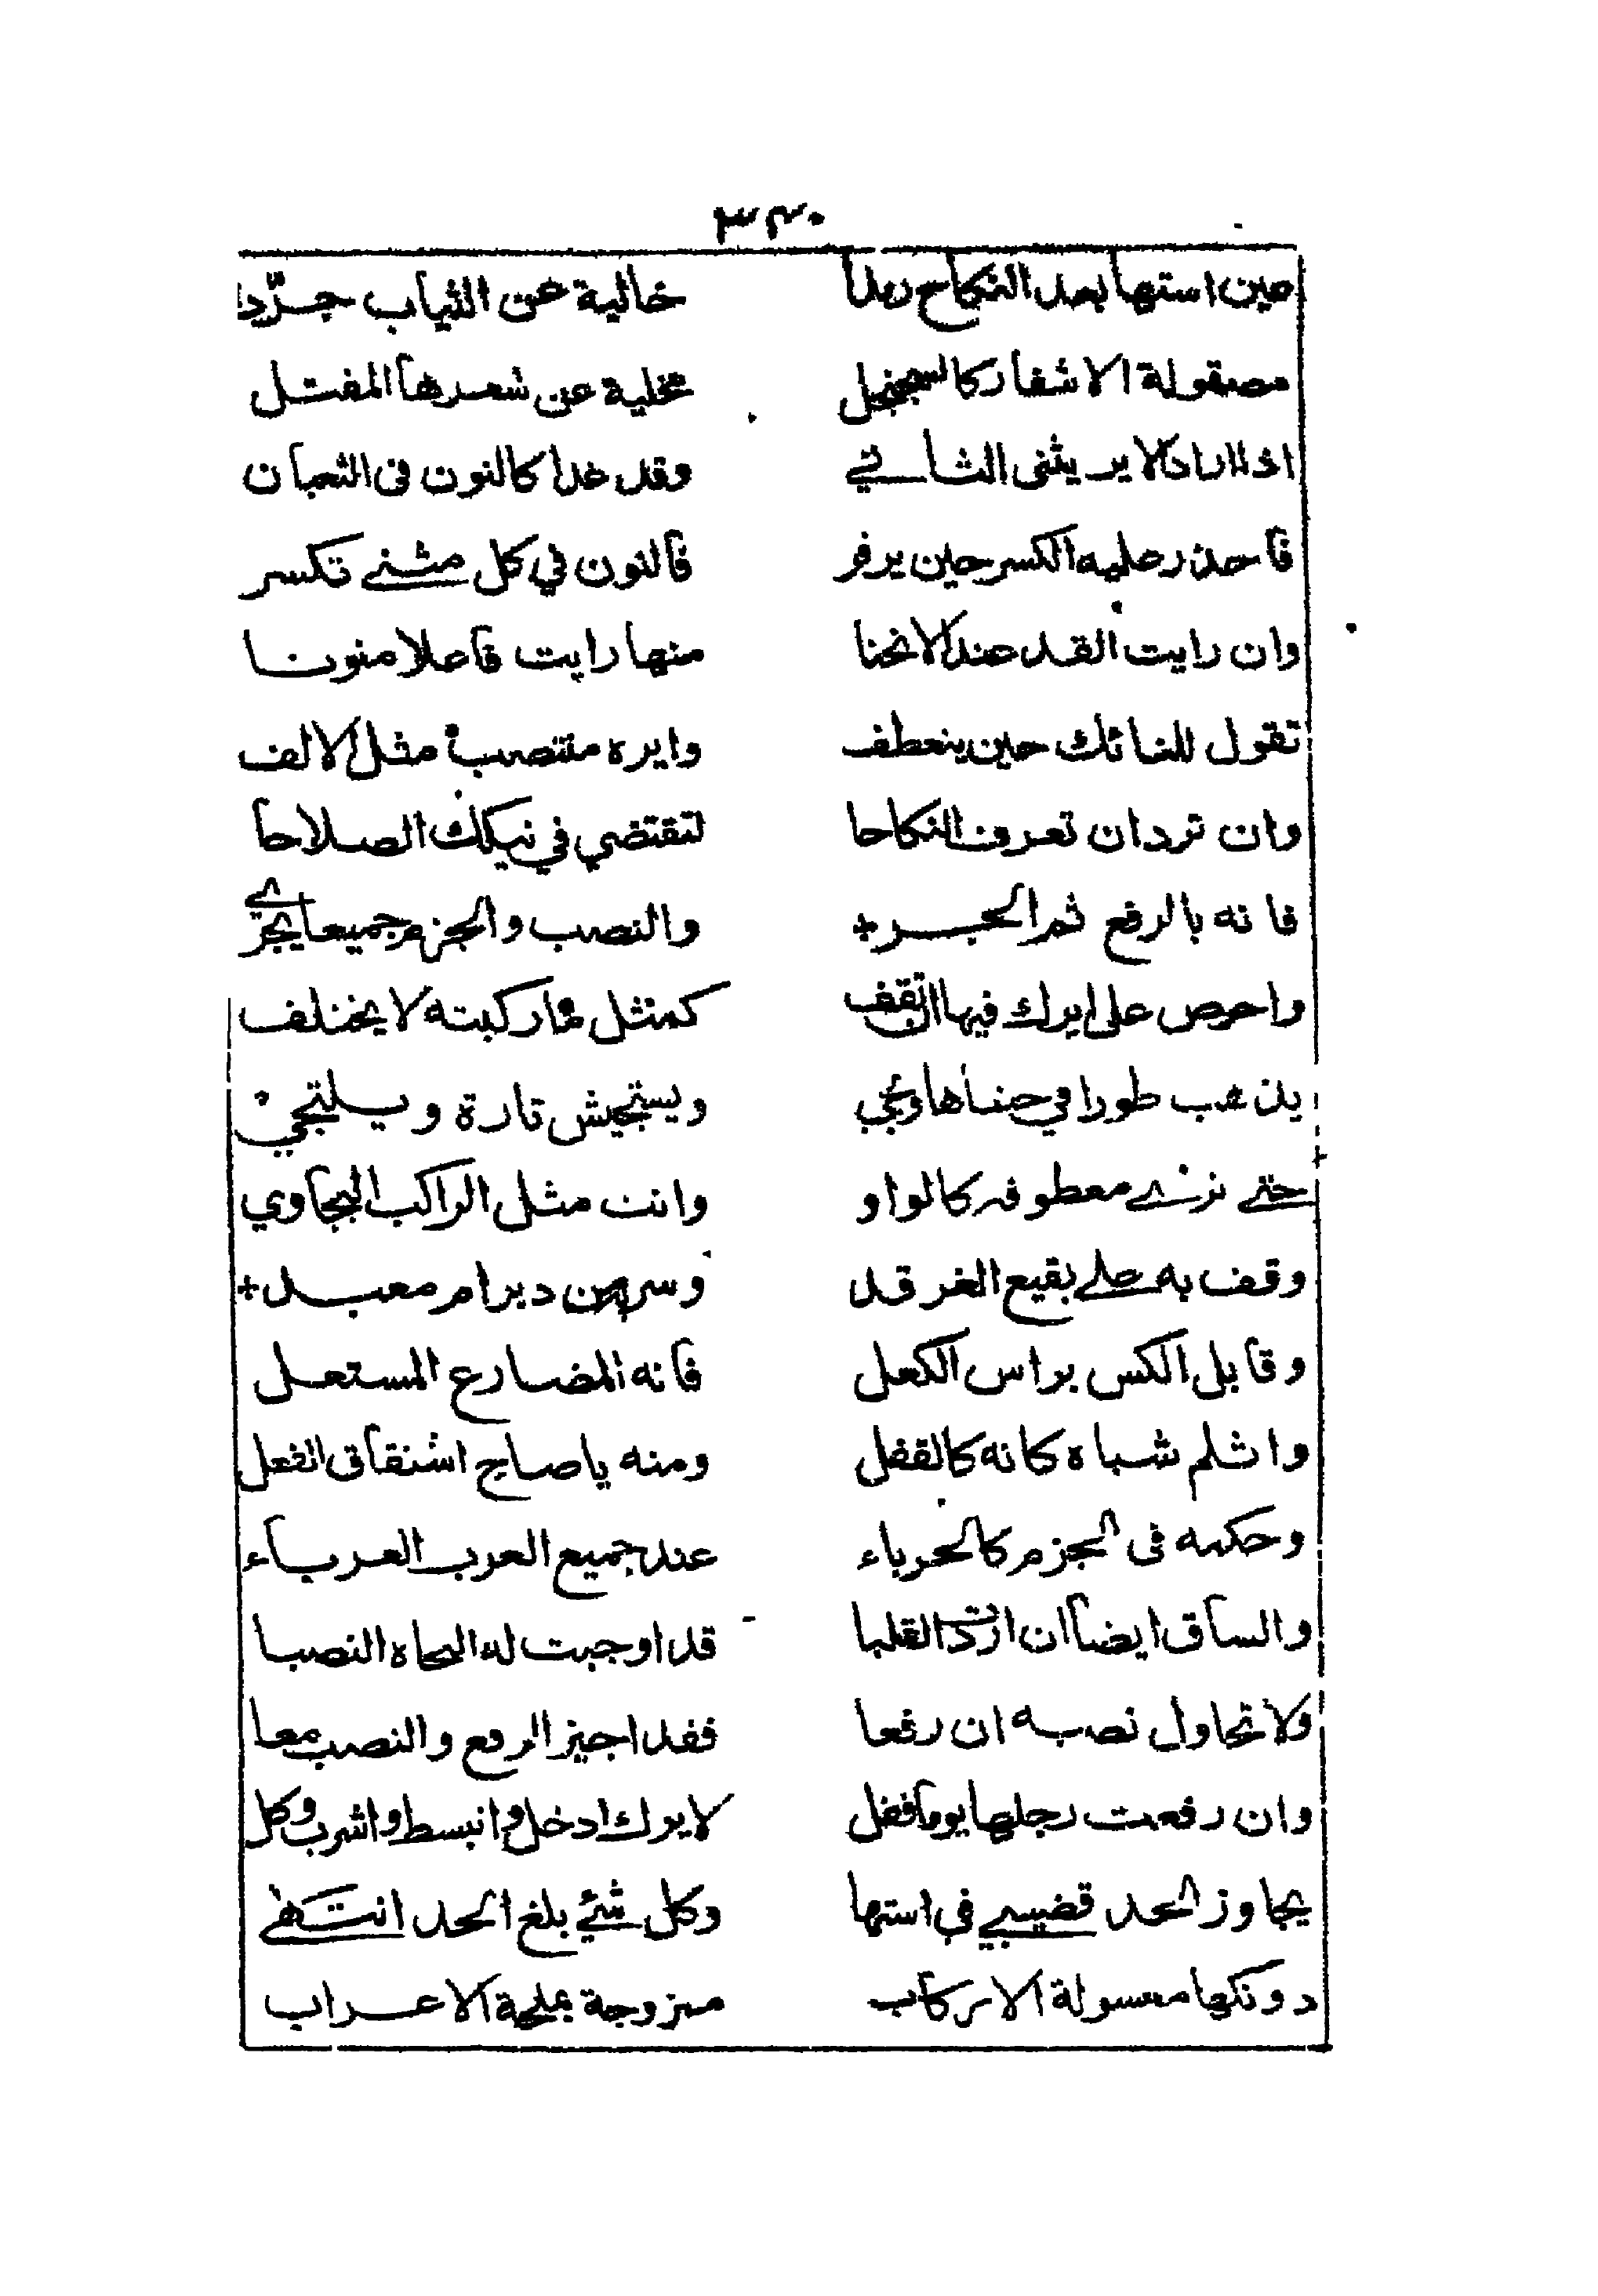 ٣٣٠
حين استها بعد النكاح ربدا خالية عن الثياب جرّدا
مصقولة الاشفار كالسجنجل مخلية عن شعرها المفتل
اذا اراد الاير يثنى الثاني وقد غدا كالنون فى الثعبان
فاحذر عليه الكسر حين يرفر فالنون في كل مثنى تكسر
وان رايت القد عند الانحنا منها رايت فاعلا منونا
تقول للنائك حين ينعطف وايره منتصب مثل الالف
وان ترد ان تعرف النكاحا لتقتضي في نيكك الصلاحا
فانه بالرفع ثم الجر والنصب والجزم جميعا يجرى
واحرص على ايرك فيها ان تقف كمثل ما ركبته لا يختلف
يذهب طورا في حشاها ويجي ويستجيش تارة ويلتجي
حتى ترى معطوفه كالواو وانت مثل الراكب البجاوي
وقف به على بقيع الغرقد وسر الى دير ام معبد
وقابل الكس براس الكعل فانه المضارع المستعل
واثلم شباه كانه كالقفل ومنه يا صاح اشتقاق الفعل
وحكمه فى الجزم كالحرباء عند جميع العرب العرباء
والساق ايضا ان اردت القلبا قد اوجبت له النحاه النصبا
ولا تحاول نصبه ان رفعا فقد اجيز الرفع والنصب معا
وان رفعت رجلها يوما فقل لايرك ادخل وانبسط واشرب وكل
يجاوز الحد قضيبي فى استها وكل شئ بلغ الحد انتهى
دونكها معسولة الاركاب ممزوجة بملحة الاعراب